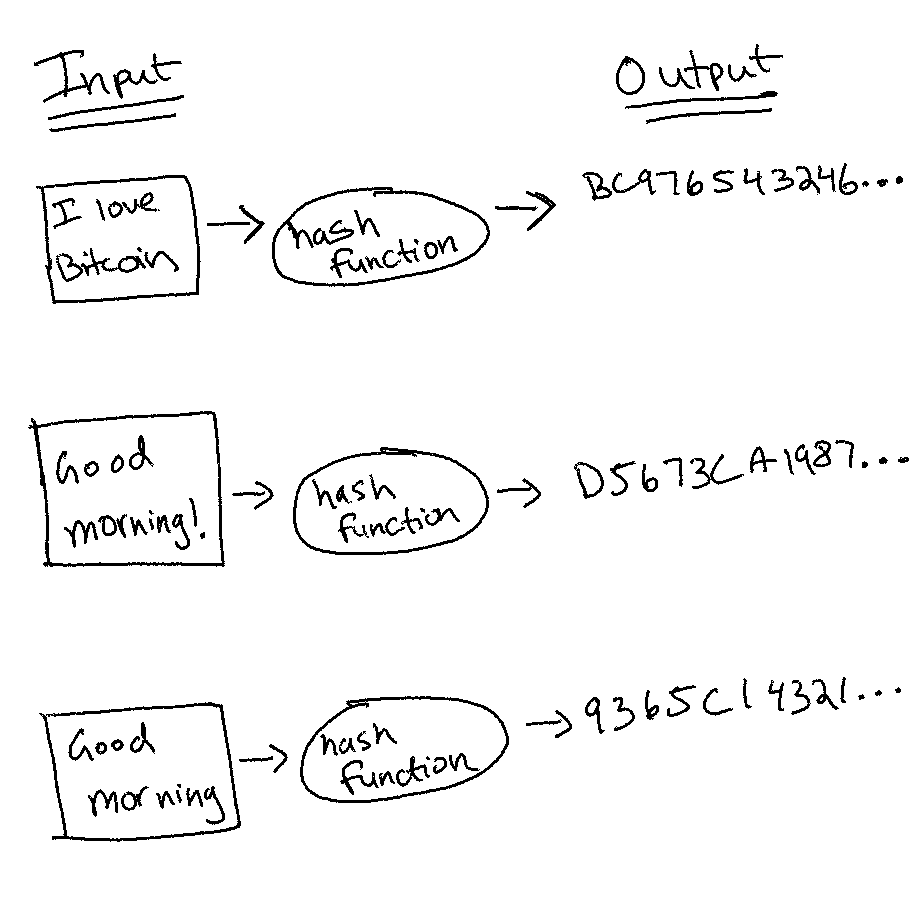 Input
Output
I love
Bitcoin
hash
function
BC976543246...
Good
morning!
hash
function
D5673CA1987...
Good
morning
hash
function
9365C14321...